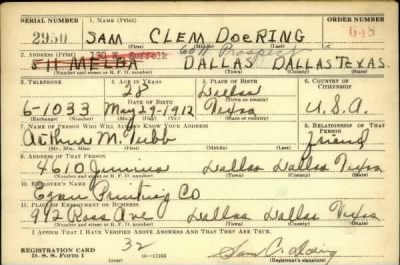 SERIAL NUMBER 1. NAME (Print) ORDER NUMBER
2950 SAM CLEM DOERING 648
(First) (Middle) (Last)
2. ADDRESS (Print)
511 MELBA DALLAS DALLAS TEXAS.
(Number and street or R. F. D. number) (Town) (County) (State)
3. TELEPHONE 4. AGE IN YEARS 5. PLACE OF BIRTH 6. COUNTRY OF CITIZENSHIP
28 Dallas
DATE OF BIRTH (Town or county)
6-1033 May 29-1912 Texas U.S.A.
(Exchange) (Number) (Mo.) (Day) (Yr.) (State or country)
7. NAME OF PERSON WHO WILL ALWAYS KNOW YOUR ADDRESS 8. RELATIONSHIP OF THAT PERSON
Arthur M. Tubb friend
(Mr., Mrs., Miss) (First) (Middle) (Last)
9. ADDRESS OF THAT PERSON
4610 Dallas Dallas Texas
(Number and street or R. F. D. number) (Town) (County) (State)
10. EMPLOYER'S NAME
Egan Printing Co
11. PLACE OF EMPLOYMENT OR BUSINESS
912 Ross Ave Dallas Dallas Texas
(Number and street or R. F. D. number) (Town) (County) (State)
I AFFIRM THAT I HAVE VERIFIED ABOVE ANSWERS AND THAT THEY ARE TRUE.
REGISTRATION CARD 32
D. S. S. Form 1 Sam C. Doering
(Registrant's signature)